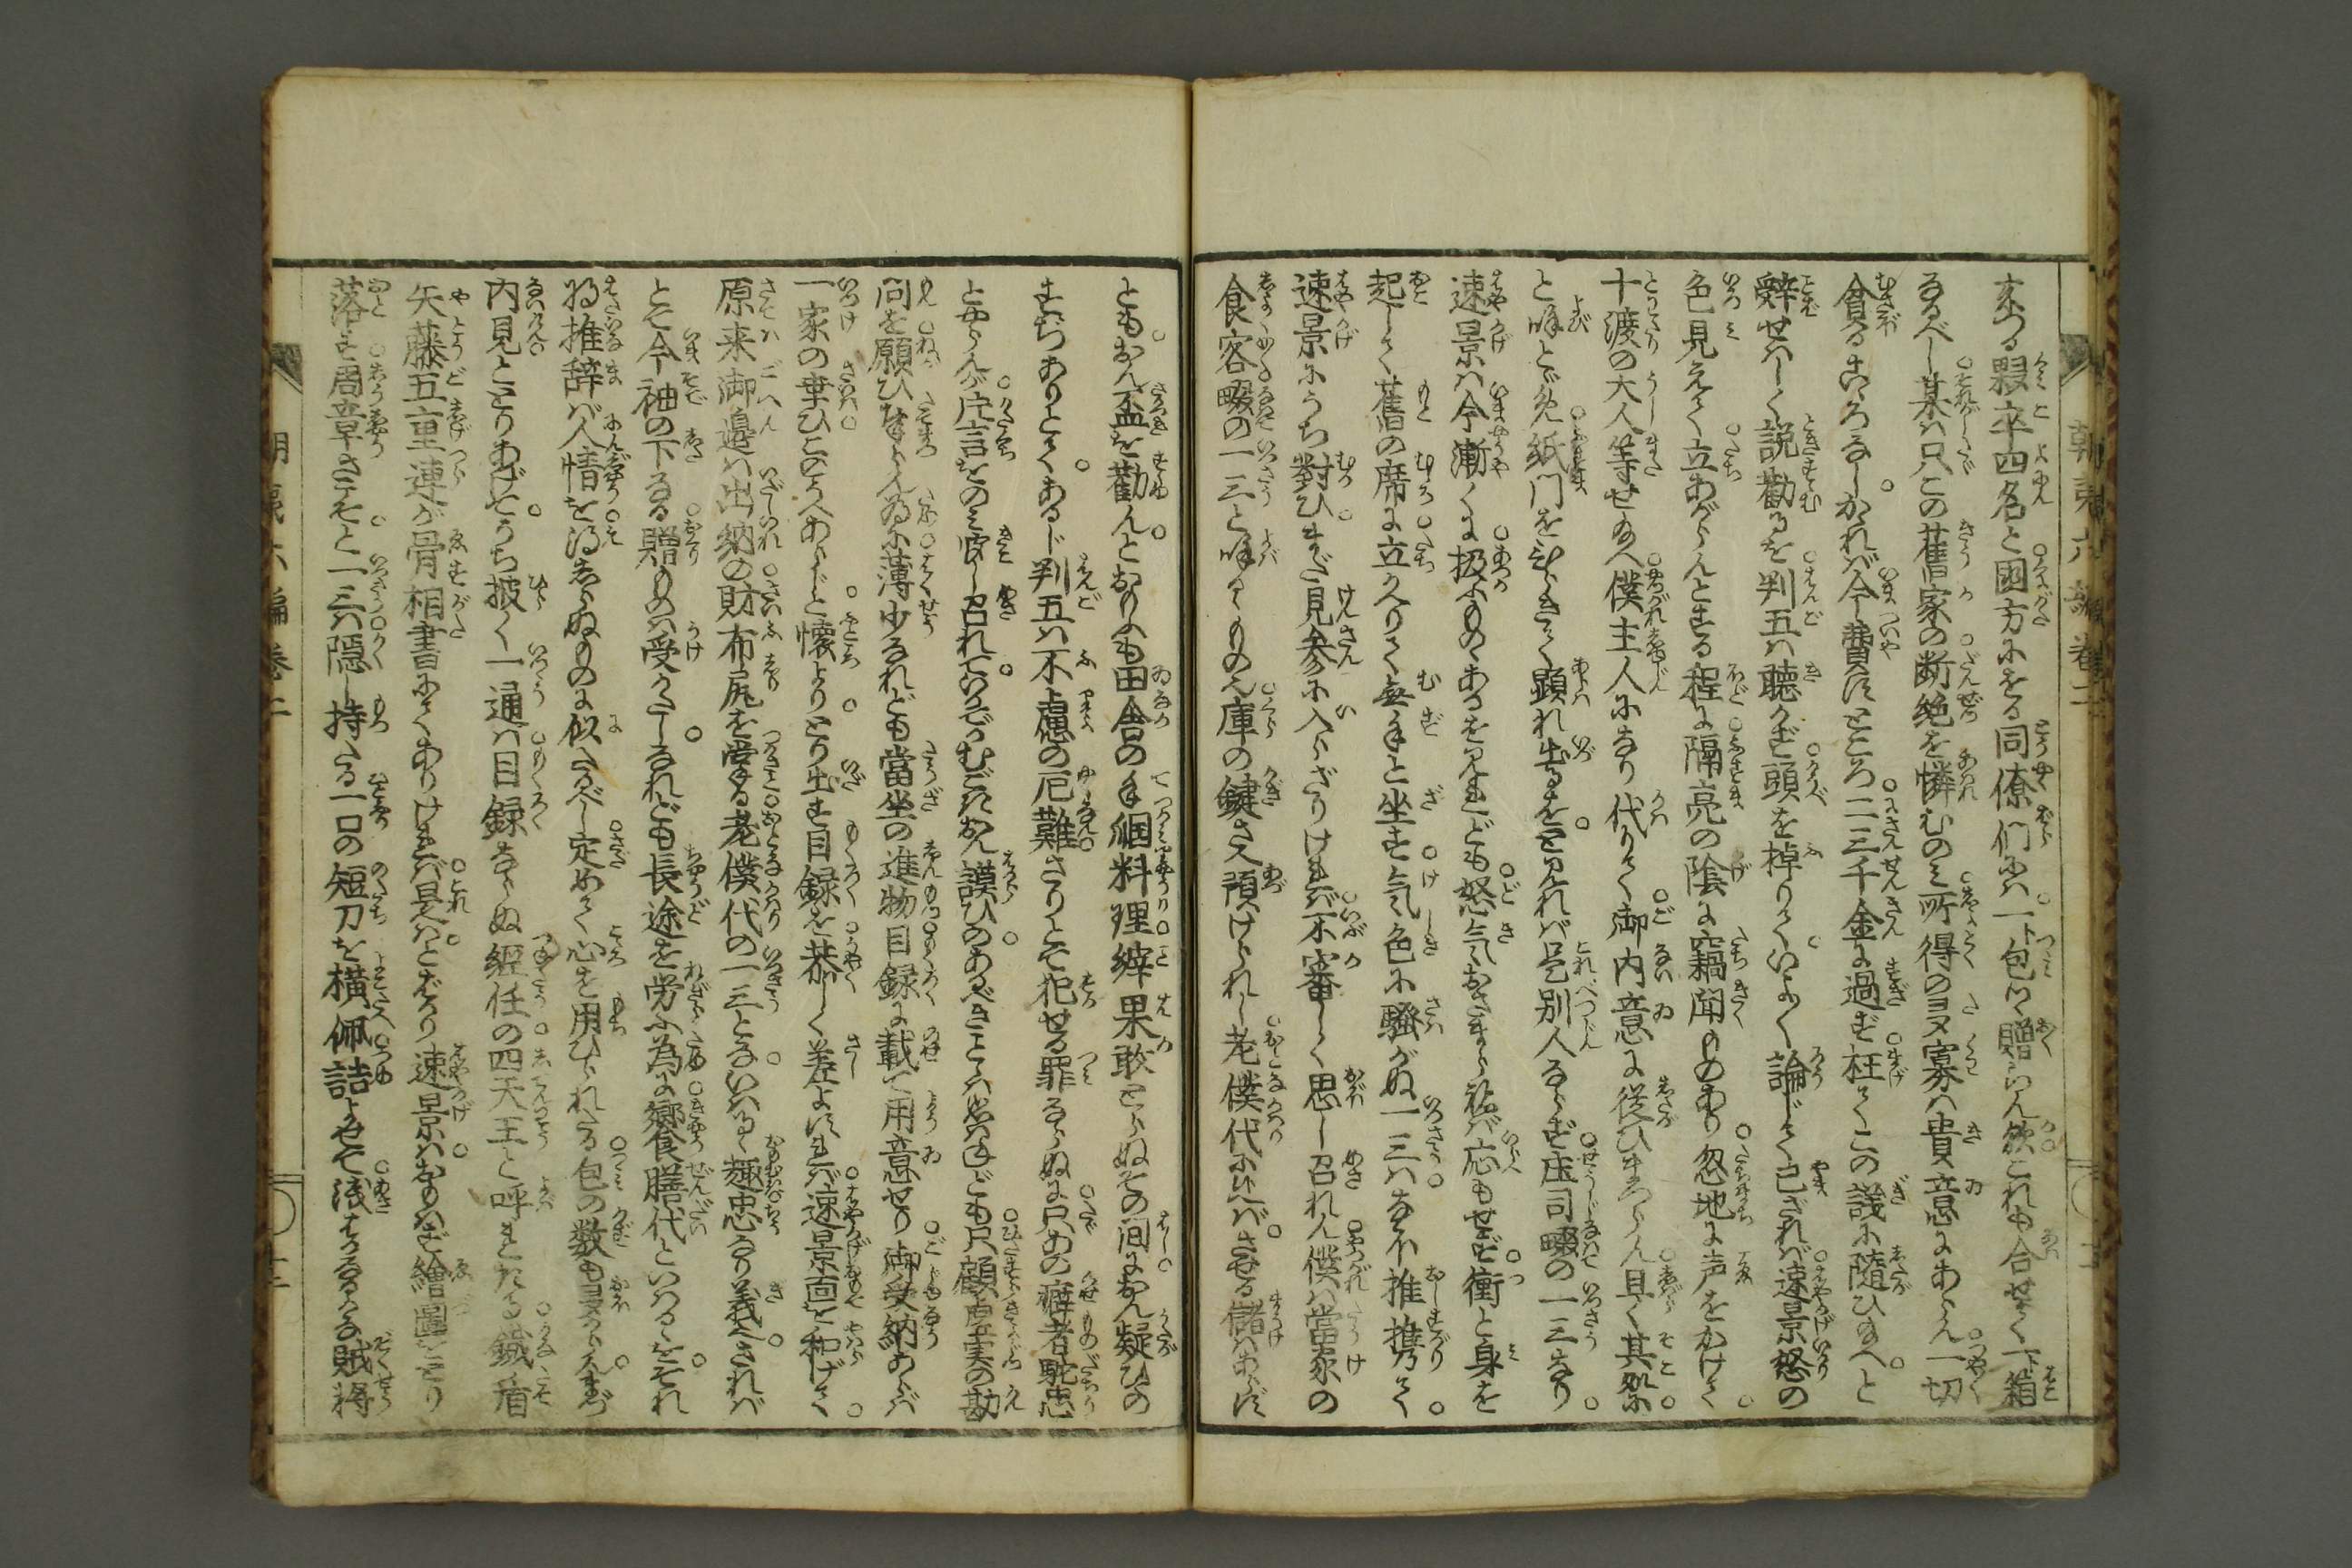 る夥卒四名と国方にをる同僚們にハ一包ツヽ贈らん欲これも合せて一箱
なるべし某ハ只この舊家の断絶を憐むのミ所得の多寡ハ貴意にあらん一切
貪るこゝろなしかれバ今費ハすところ二三千金に過ず枉てこの議に隨ひ給へと
辞せハしく説勸るを判五ハ聴かず頭を掉りていよゝ論じて已ざれバ速景怒の
色見えて立あがらんとする程に隔亮の陰に竊聞ものあり忽地に声をかけて
十渡の大人等せ給へ僕主人になり代りて御内意に從ひまつらん且く其処に
と呼とゞめ紙門をひらきて顕れ出るをと見れバ是別人ならず庄司畷の一三なり
速景ハ今漸くに扱ふものゝあるを見れども怒気おさまらねバ応もせず衝と身を
起して舊の席に立かへりて無手と坐す気色に騒がぬ一三ハなほ推携りて
速景にうち對ひまだ見参に入らざりけれバ不審しく思し召れん僕ハ當家の
食客畷の一三と呼るゝもの庫の鍵さえ預けられし老僕代に候へバさせる儲ハあらず
ともおん盃を勸んとおもへも田舎の手佃料理縡果敢とらぬその間におん疑ひの
すぢありとてあるじ判五ハ不慮の厄難さりとて犯せる罪ならぬに只あの癖者駝忠
とやらんが片言をのミ聞し召れていかでかむごきおん謨ひのあるべきことハ候はねども只顧虚実の勘
問を願ひ奉らん為に薄少なれども當坐の進物目録に載て用意せり御受納あらバ
一家の幸ひこのうへあらじと懐よりとり出す目録を恭しく差よすれバ速景面を和げて
原来御邊ハ出納の財布尻を掌る老僕代の一三とな いはるゝ趣忠なり義なりされバ
とて今袖の下なる贈ものハ受かたしなれども長途を労ふ為に饗食膳代といハるゝをそれ
将推辞バ人情を得しらぬものに似たるべし定めて心を用ひられたる包の数も多からんまづ
内見ととりあげてうち披く一通ハ目録ならぬ經任の四天王と呼れたる鐵盾
矢藤五重連が骨相書にてありけれバ是ハとばかり速景ハおもハず繪圖をとり
落す周章さこそと一三ハ隠し持たる一口の短刀を横佩詰よせて浅はかなる賊将